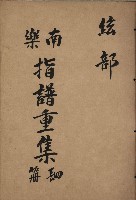 絃部
南樂指譜重集